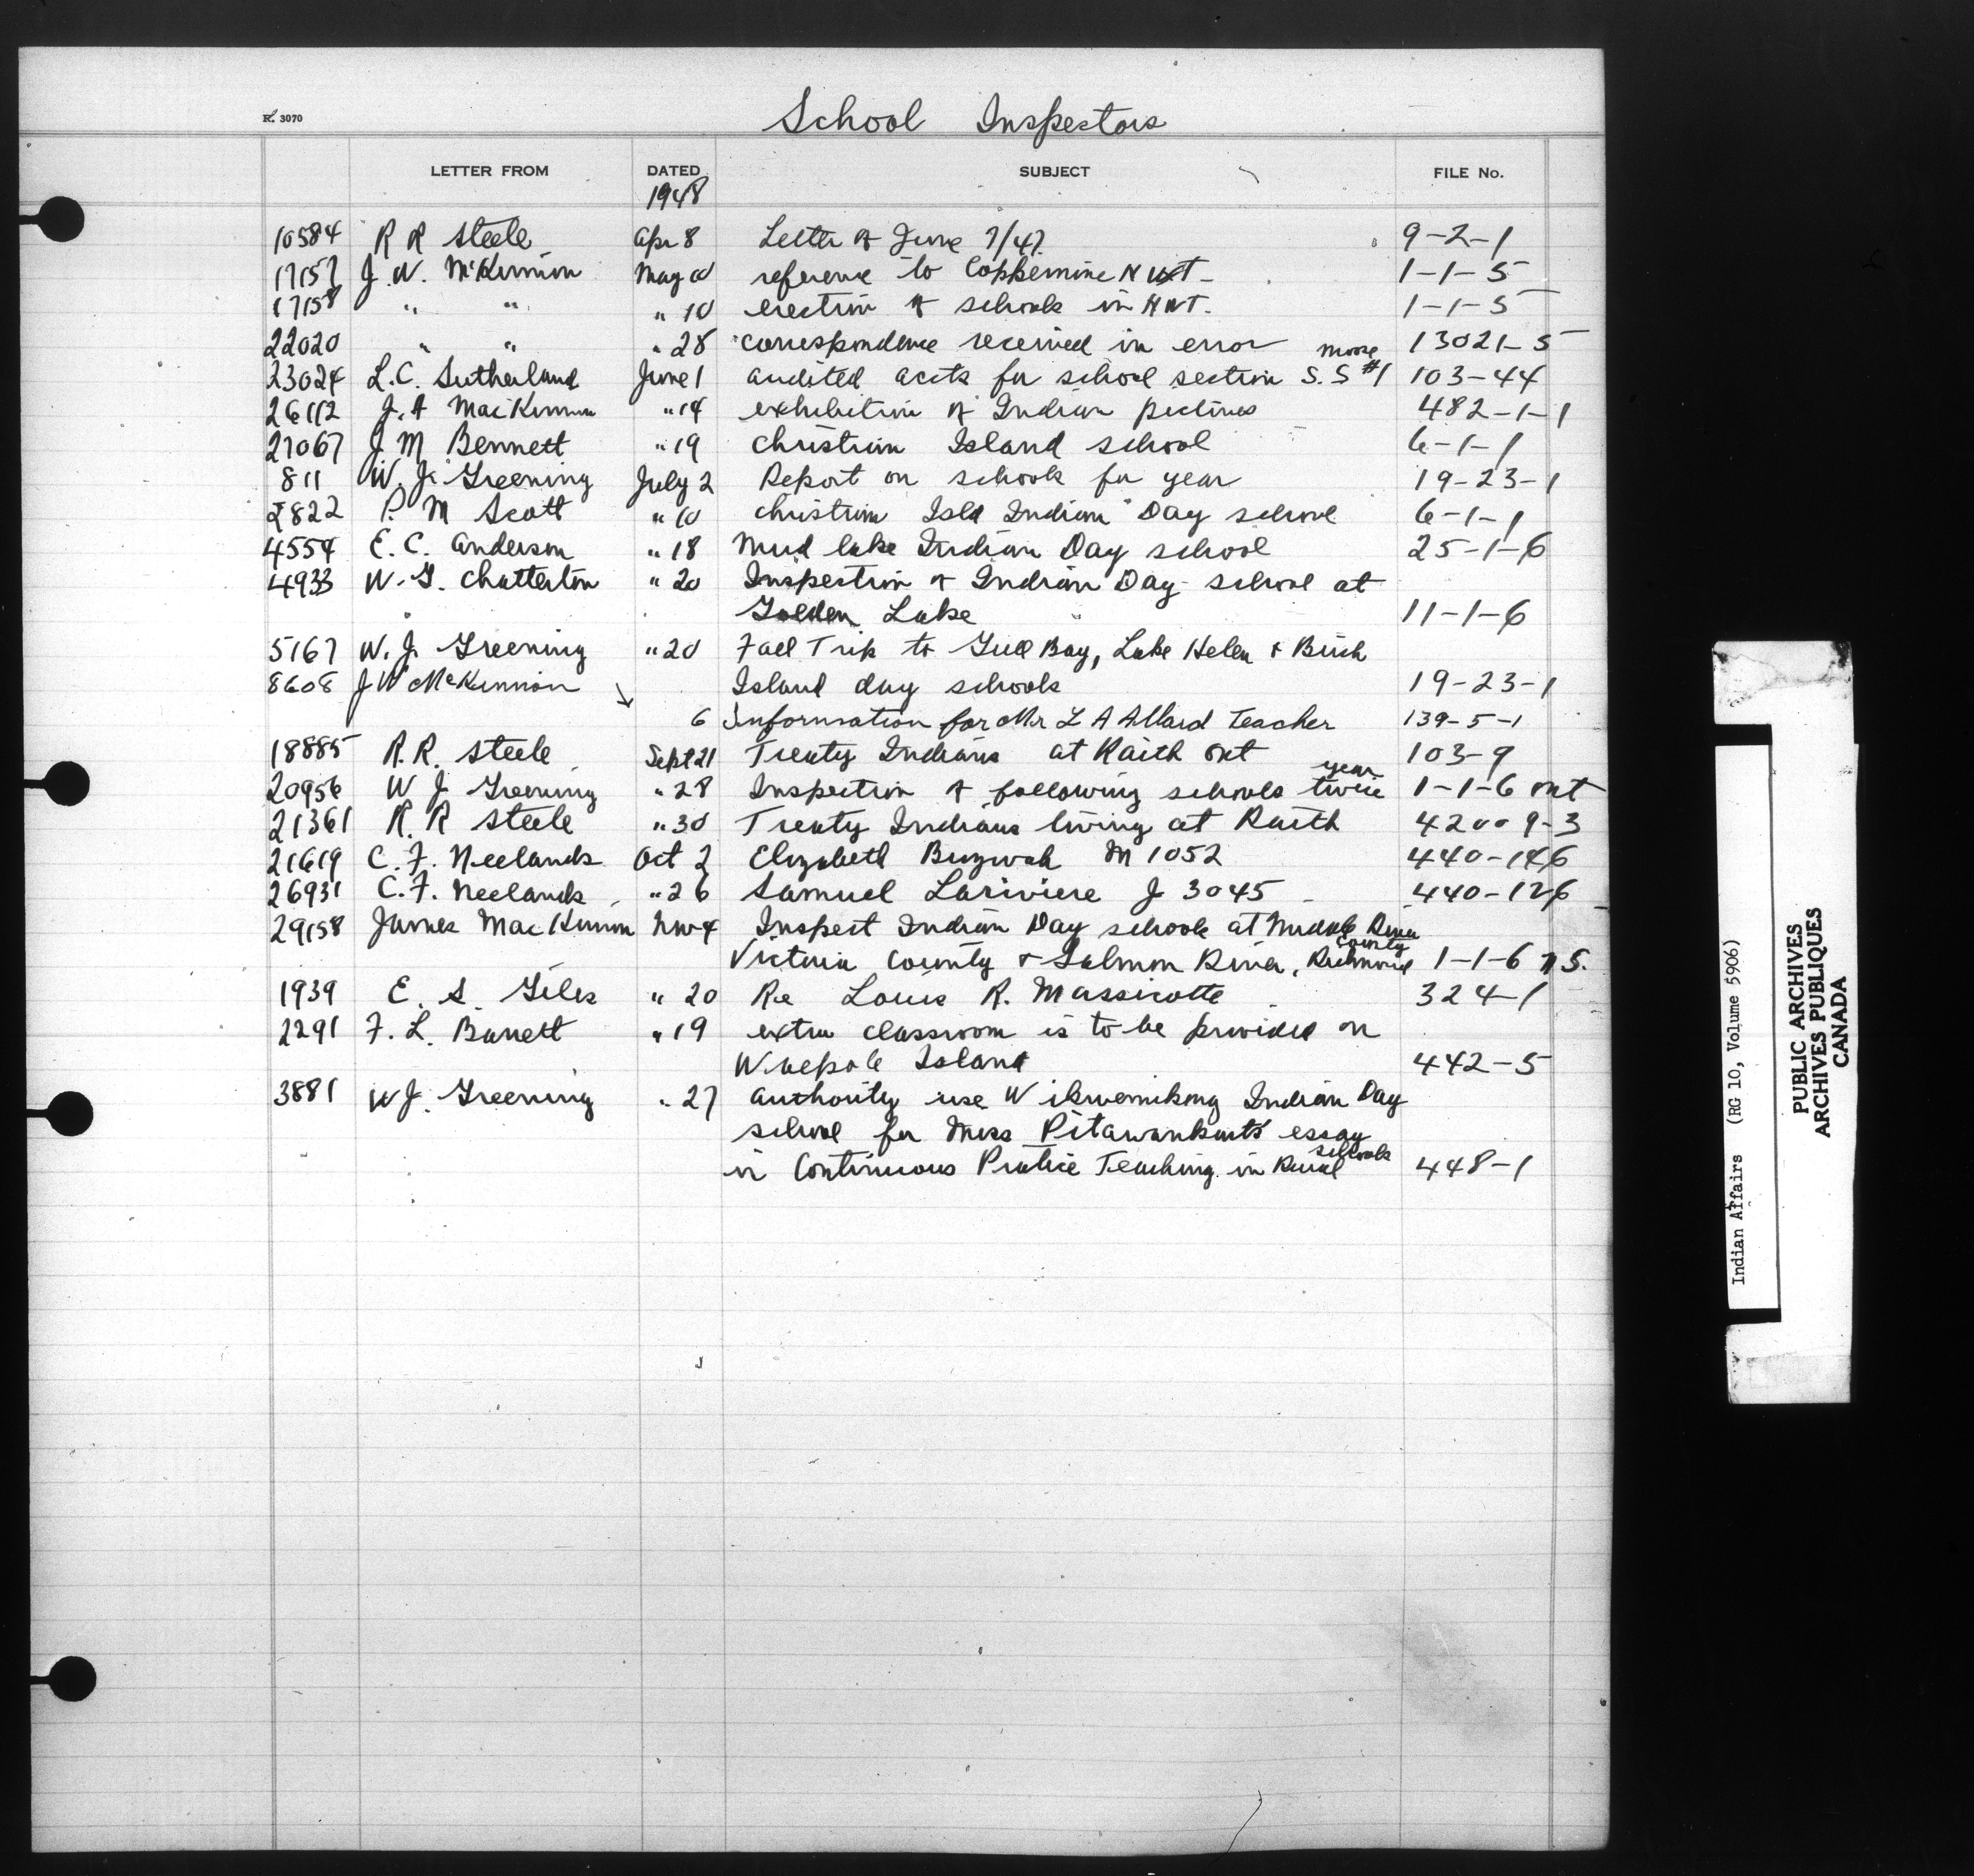 School Inspectors
R. 3070
LETTER FROM DATED SUBJECT FILE No.
1948
10584 R R Steele Apr 8 Letter of June 7/47 9-2-1
17157 J. W. McKinnon May 10 reference to Coppermine N W T- 1-1-5
17158 " " " 10 erection of schools in N W T. 1-1-5
22020 " " " 28 correspondence received in error 13021-5
moose
23024 L.C. Sutherland June 1 audited accts for school section S.S #1 103-44
26112 J. A MacKinnon " 14 exhibition of Indian pictures 482-1-1
27067 J M Bennett " 19 Christian Island school 6-1-1
811 W. J. Greening July 2 Report on schools for year 19-23-1
2822 P. M Scott " 10 Christian Isld Indian Day school 6-1-1
4554 E. C. Anderson " 18 Mud lake Indian Day school 25-1-6
4933 W. G. Chatterton " 20 Inspection of Indian Day school at
Golden Lake 11-1-6
5167 W. J. Greening " 20 Fall Trip to Gull Bay, Lake Helen & Birch
8608 J W McKinnon Island day schools 19-23-1
6 Information for Mr L A Allard Teacher 139-5-1
18885 R. R. Steele Sept 21 Treaty Indians at Raith Ont 103-9
year
20956 W J Greening " 28 Inspection of following schools twice 1-1-6 Ont
21361 R. R Steele " 30 Treaty Indians living at Raith 420-9-3
21619 C. F. Neelands Oct 2 Elizabeth Buzwah M 1052 440-146
26931 C. F. Neelands " 26 Samuel Lariviere J 3045 440-126
29158 James MacKinnon Nov 4 Inspect Indian Day schools at Middle River
County
Victoria County & Salmon River, Richmond 1-1-6 N S.
1939 E. S. Giles " 20 Re Louis R. Massicotte 324-1
2291 F. L. Barrett " 19 extra classroom is to be provided on
Walpole Island 442-5
3881 W J. Greening " 27 authority use Wikwemikong Indian Day
school for Miss Pitawankwat's essay
schools
in Continuous Pratice Teaching in Rural 448-1
Indian Affairs (RG 10, Volume 5906)
PUBLIC ARCHIVES
ARCHIVES PUBLIQUES
CANADA